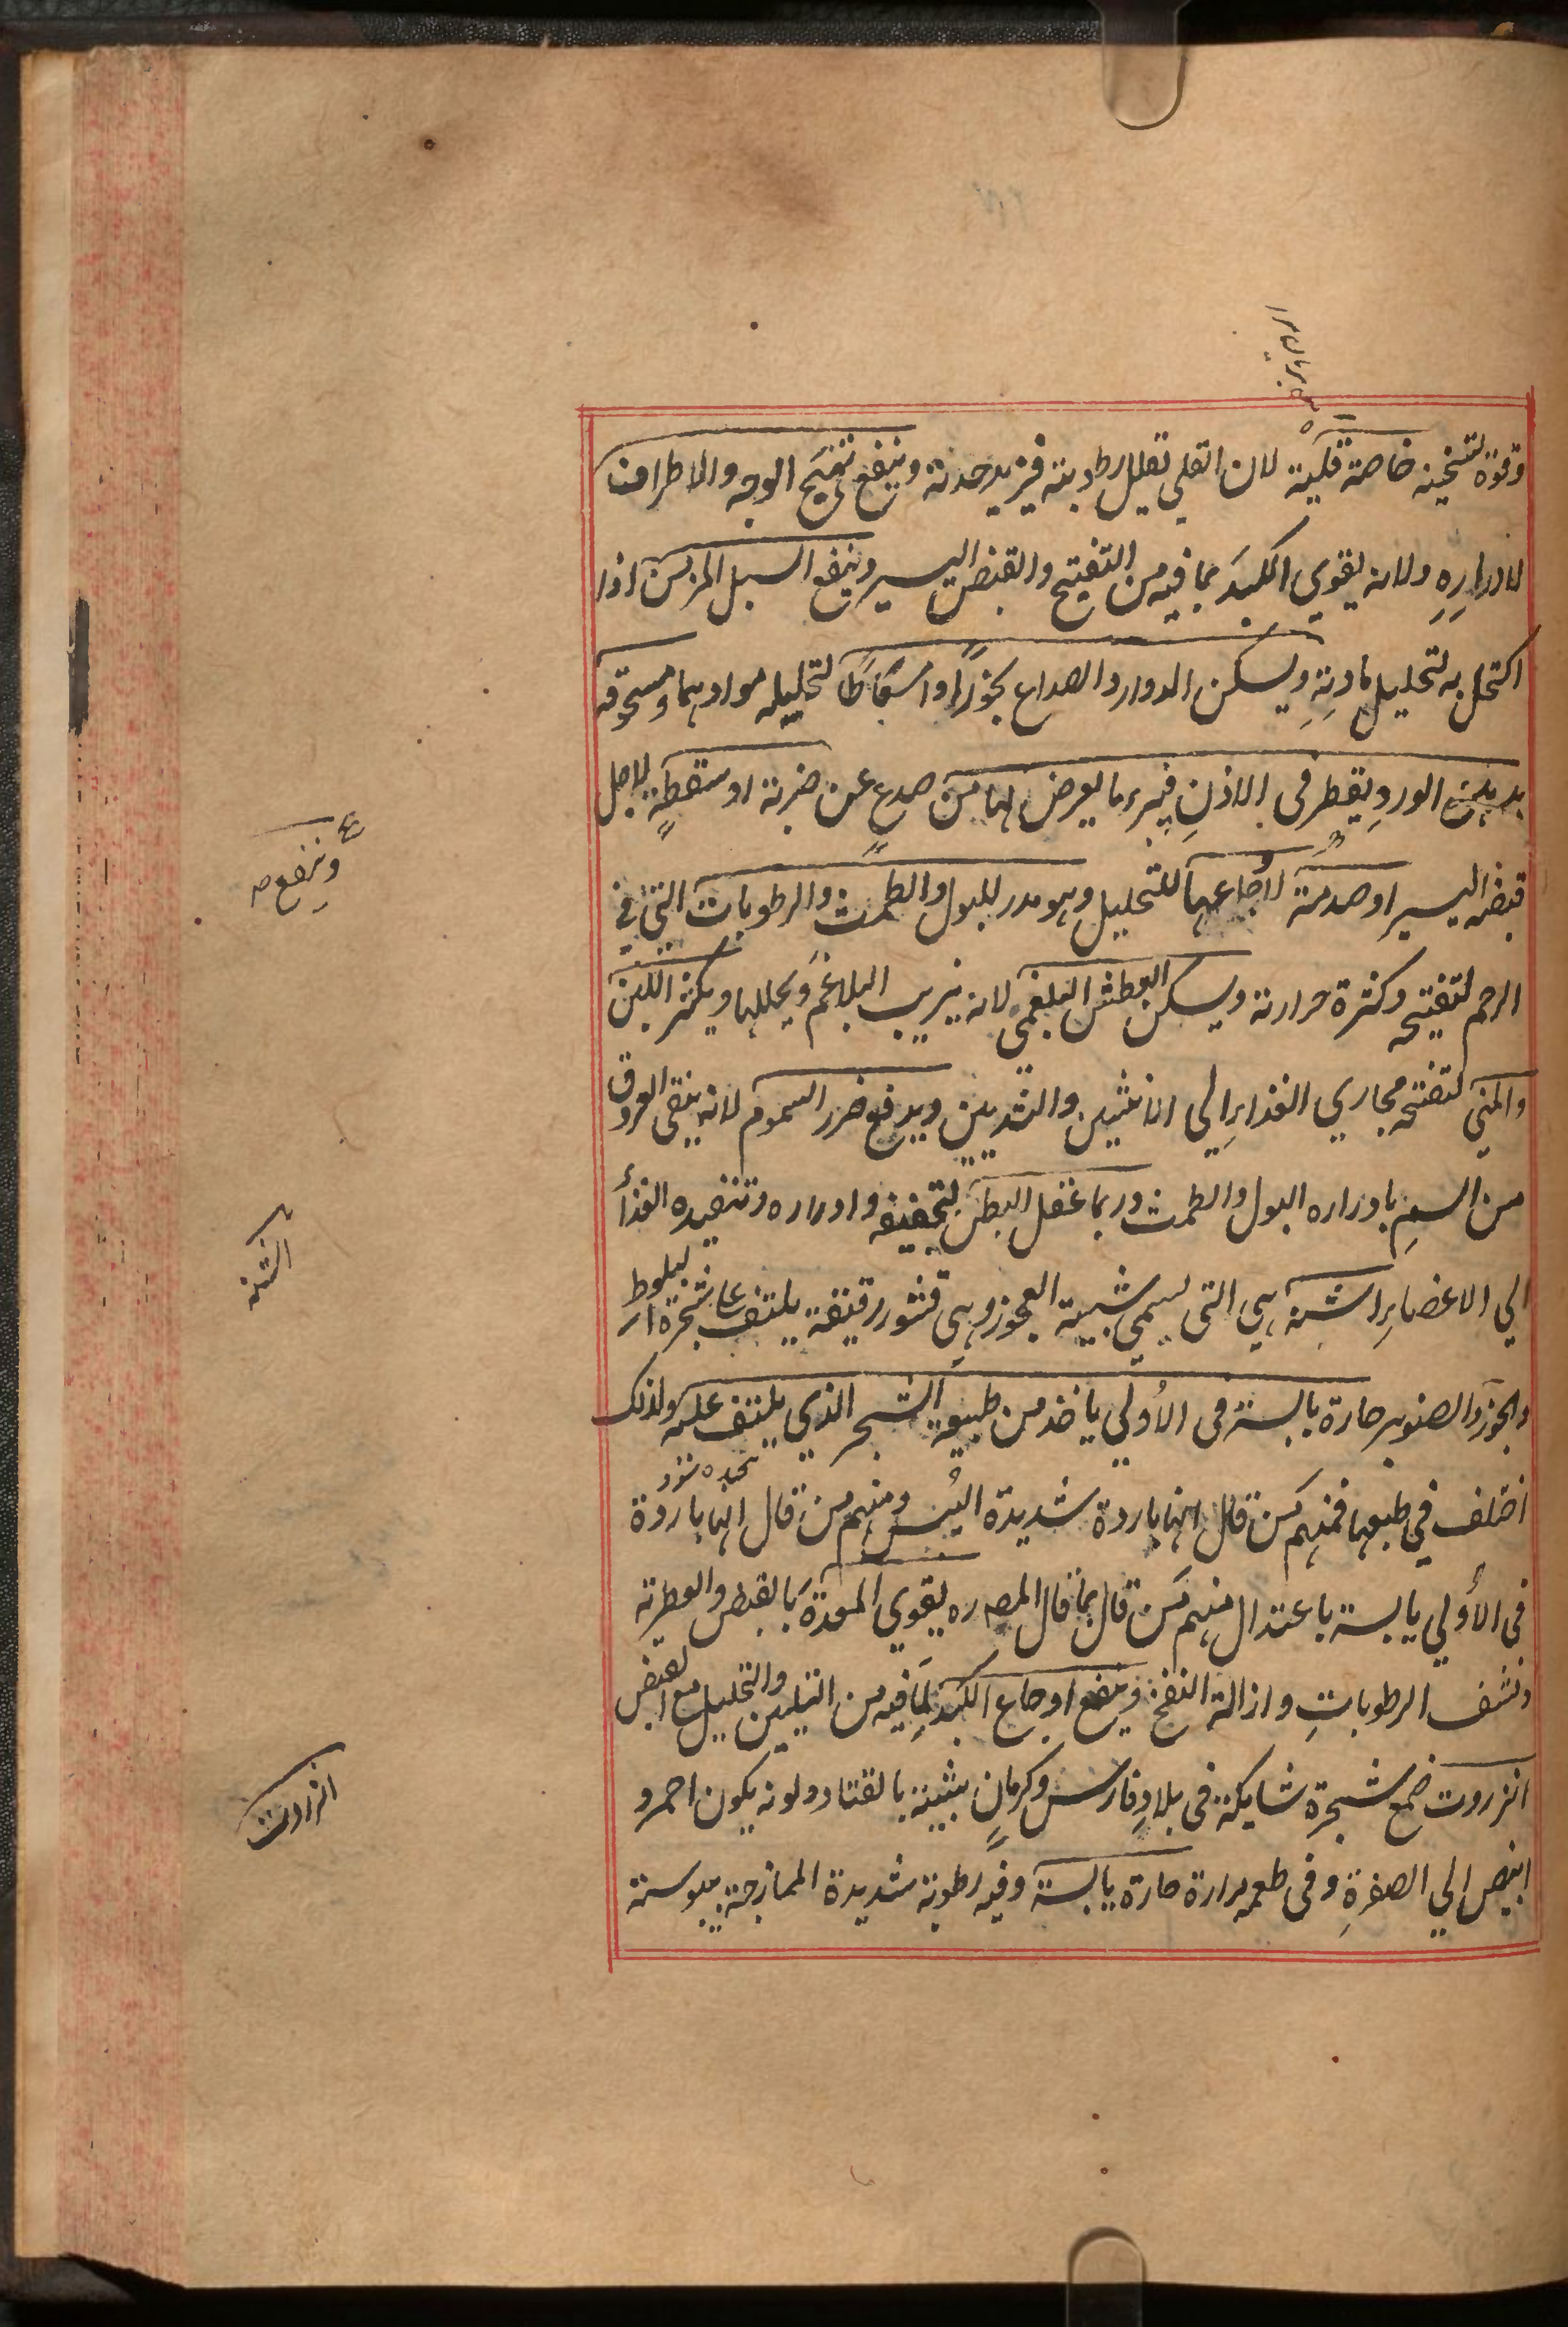 وقوة تسخينه خاصة قلية لان القلي تقلل رطوبته فيزيد حدته وينفع تهيج الوجه والاطراف
لادراره ولانه يقوي الكبد بما فيه من التفتيح والقبض اليسير وينفع السبل المزمن اذا
اكتحل به لتحليل مادته ويسكن الدوار والصداع بخورًا واسعاطًا لتحليله موادهما ومسحوقه
بدهن الورد يقطر في الاذن فيبرء ما يعرض لها من صدع عن ضربة او سقطة لاجل
قبضه اليسير او صدمة لاوجاعها للتحليل وهو مدر للبول والطمث والرطوبات التي في
الرحم لتفتيحه وكثرة حرارته ويسكن العطش البلغمي لانه يذيب البلاغم ويحللها ويكثر اللبن
والمني لتفتحه مجاري الغذاء الي الانثيين والثديين ويدفع ضرر السموم لانه ينقي العروق
من السم بادراره البول والطمث وربما عقل البطن لتجفيفه وادراره وتنفيده الغذأ
الي الاعضاء اشنه هي التي تسمي شيبة العجوز وهي قشور رقيقة يلتف علي شجرة البلوط
والجوز والصنوبر حارة يابسة في الأولي ياخذ من طبيعة الشجر الذي يلتف عليه ولذلك
اختلف في طبعها فمنهم من قال انها باردة شديدة اليبس ومنهم من قال انها باردة
في الأولي يابسة باعتدال منهم من قال بما قال المص ره يقوي المعدة بالقبض والعطرية
ونشف الرطوبات وازالة النفخ وينفع اوجاع الكبد لما فيه من التليين والتحليل مع القبض
انزروت صمغ شجرة شايكة في بلاد فارس وكرمان يشبه بالقتاد ولونه يكون احمر و
ابيض الي الصفرة وفي طعمه مرارة حارة يابسة وفيه رطوبة شديدة الممازجة بيبوسته
وينفع
اشنه
انزروت